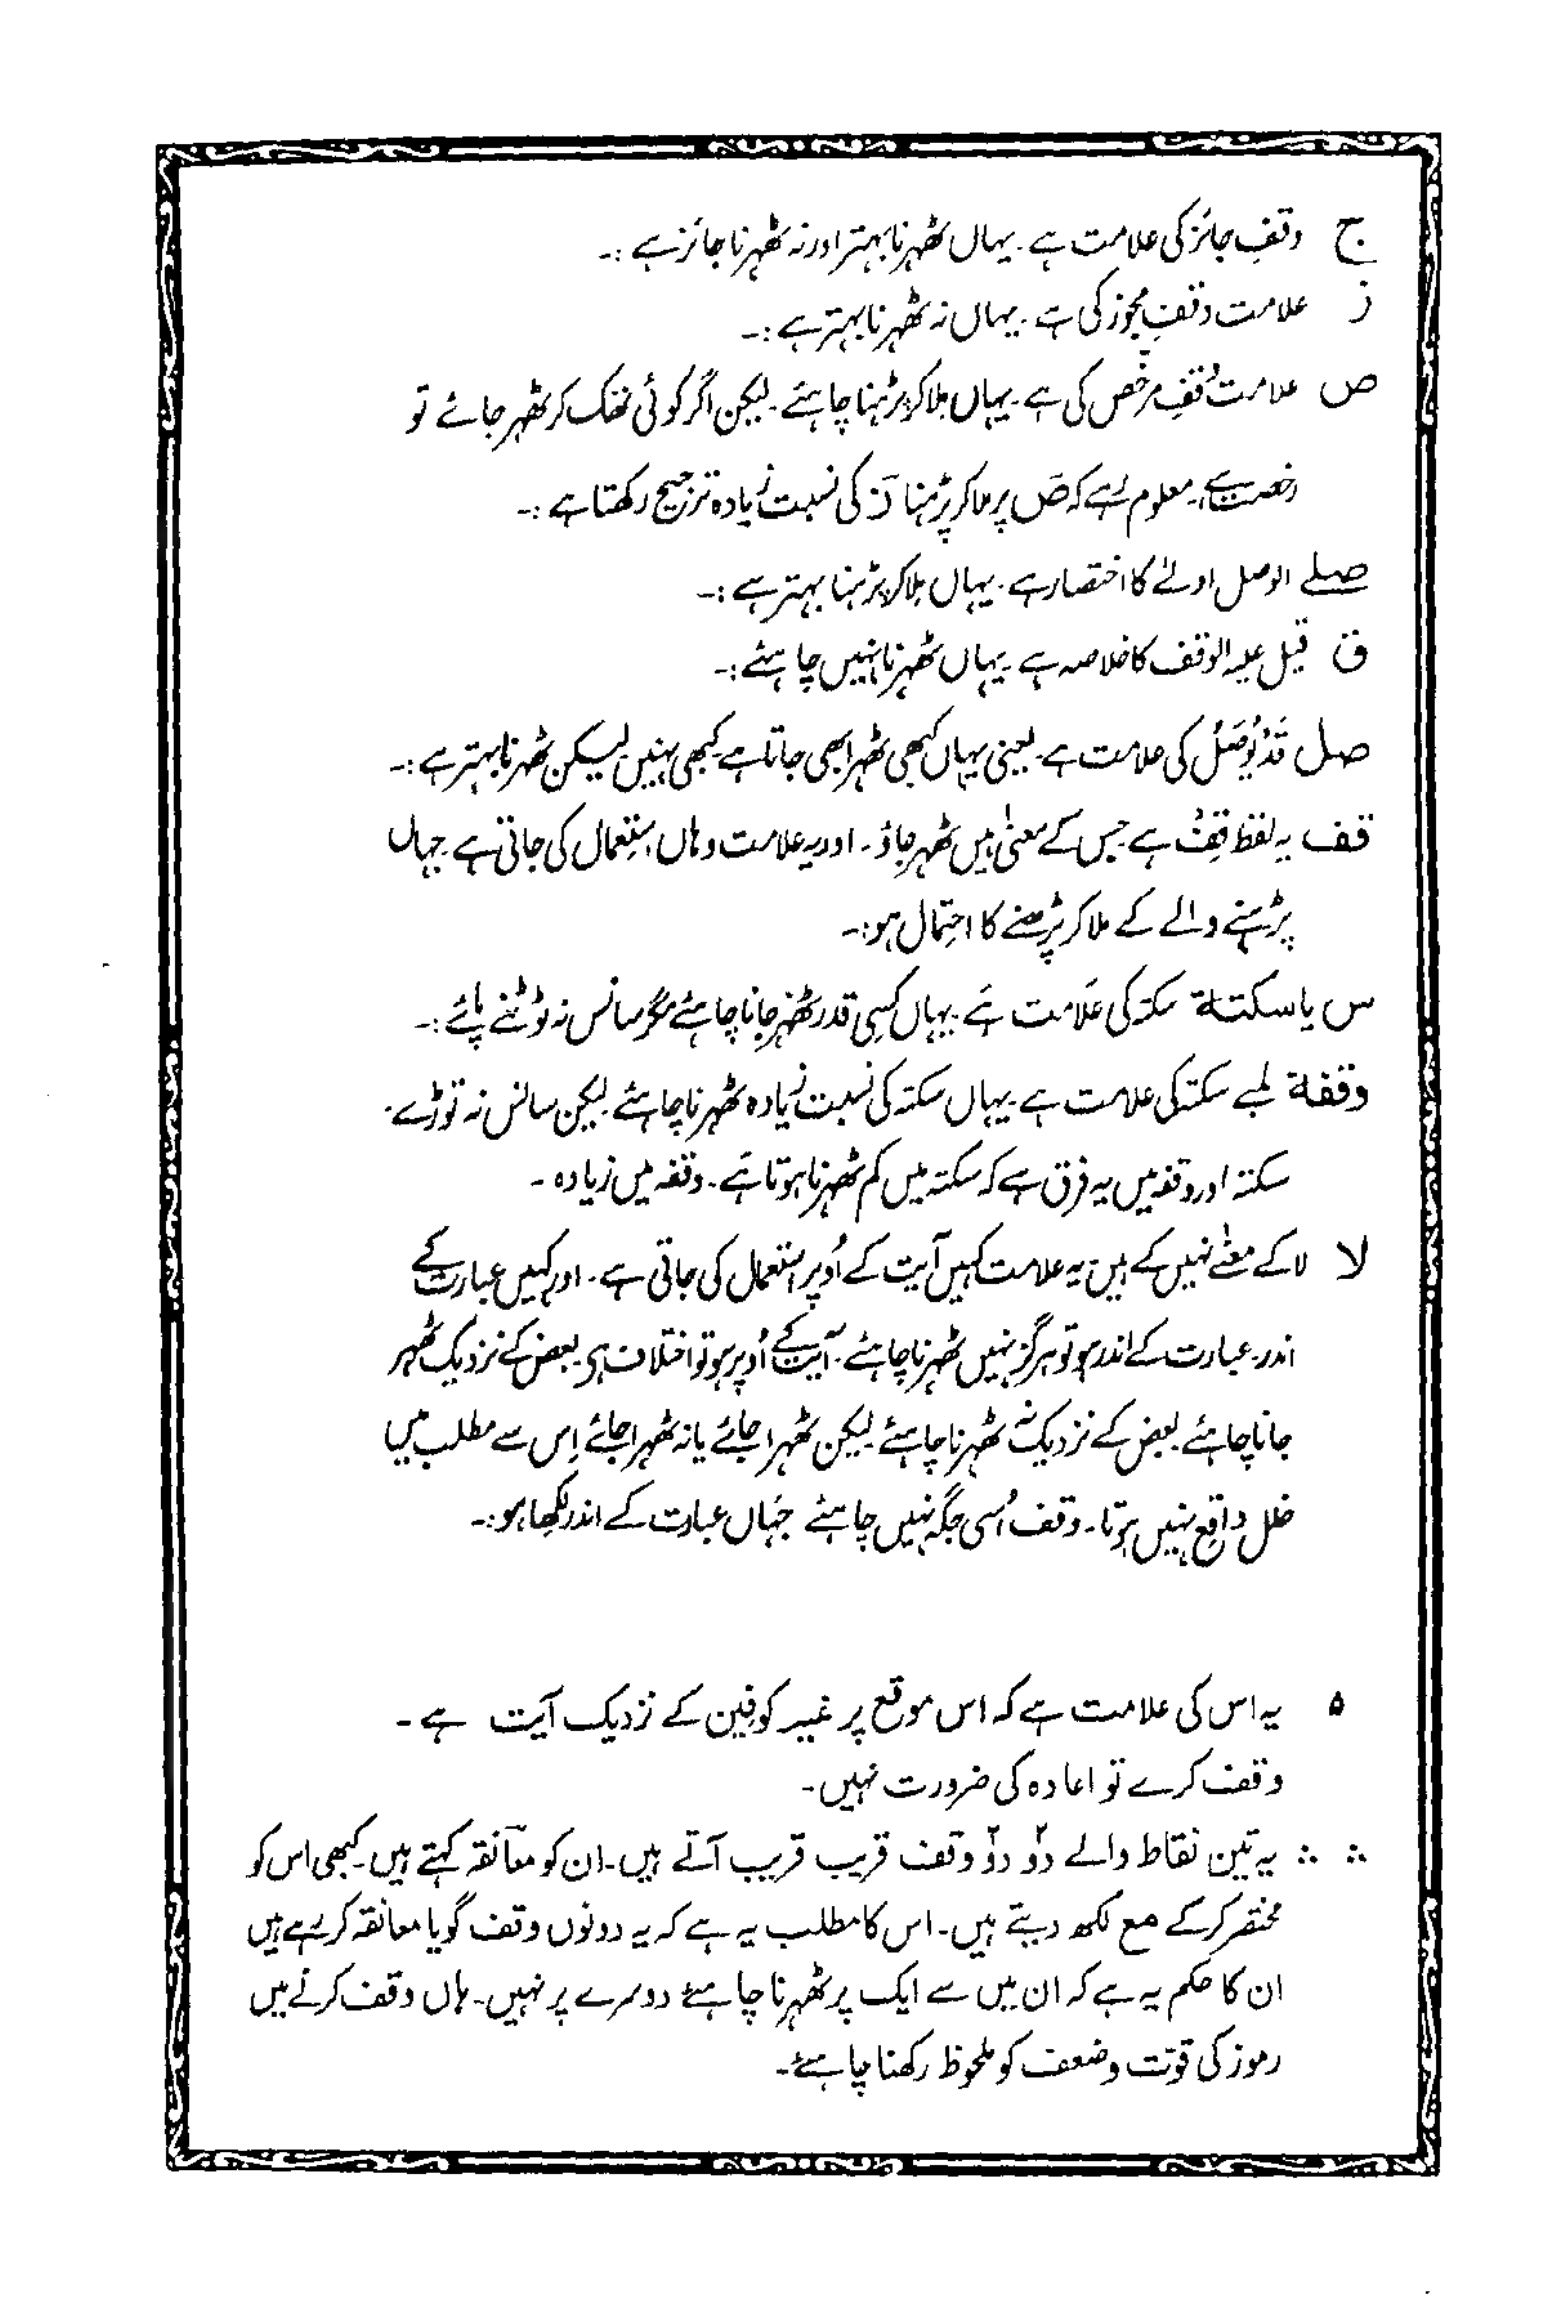 ج وقفِ جائز کی علامت ہے۔ یہاں ٹھہرنا بہتر اور نہ ٹھہرنا جائز ہے :۔
ز علامت وقفِ مجوز کی ہے۔ یہاں نہ ٹھہرنا بہتر ہے :۔
ص علامت وقفِ مرخص کی ہے۔ یہاں ملا کر پڑہنا چاہئے۔ لیکن اگر کوئی تھک کر ٹھہر جائے تو
رخصت ہے۔ معلوم رہے کہ صَ پر ملا کر پڑہنا زَ کی نسبت زیادہ ترجیح رکھتا ہے :۔
صلے الوصل اولےٰ کا اختصار ہے۔ یہاں ملا کر پڑہنا بہتر ہے :۔
ق قیل علیہ الوقف کا خلاصہ ہے۔ یہاں ٹھہرنا نہیں چاہئے :۔
صل قَدْ یُوصَلُ کی علامت ہے۔ یعنی یہاں کبھی ٹھہرا بھی جاتا ہے۔ کبھی نہیں۔ لیکن ٹھہرنا بہتر ہے :۔
قف یہ لفظ قِفْ ہے۔ جس کے معنیٰ ہیں ٹھہر جاؤ۔ اور یہ علامت وہاں استعمال کی جاتی ہے۔ جہاں
پڑہنے والے کے ملا کر پڑھنے کا احتمال ہو :۔
س یا سکتة سکتہ کی علامت ہے۔ یہاں کسی قدر ٹھہر جانا چاہئے مگر سانس نہ ٹوٹنے پائے :۔
وقفة لمبے سکتہ کی علامت ہے۔ یہاں سکتہ کی نسبت زیادہ ٹھہرنا چاہئے۔ لیکن سانس نہ توڑے۔
سکتہ اور وقفہ میں یہ فرق ہے کہ سکتہ میں کم ٹھہرنا ہوتا ہے۔ وقفہ میں زیادہ ۔
لا لا کے معنےٰ نہیں کے ہیں یہ علامت کہیں آیت کے اُوپر استعمال کی جاتی ہے۔ اور کہیں عبارت کے
اندر۔ عبارت کے اندر ہو تو ہرگز نہیں ٹھہرنا چاہئے۔ آیت کے اُوپر ہو تو اختلاف ہی۔ بعض کے نزدیک ٹھہر
جانا چاہئے۔ بعض کے نزدیک نہ ٹھہرنا چاہئے لیکن ٹھہرا جائے یا نہ ٹھہرا جائے اِس سے مطلب میں
خلل واقع نہیں ہوتا۔ وقف اُسی جگہ نہیں چاہئے جہاں عبارت کے اندر لکھا ہو :۔
ه یہ اس کی علامت ہے کہ اس موقع پر غیر کوفیین کے نزدیک آیت ہے ۔
وقف کرے تو اعادہ کی ضرورت نہیں۔
؞ ؞ یہ تین نقاط والے دوّ دوّ وقف قریب قریب آتے ہیں۔ ان کو معانقہ کہتے ہیں۔ کبھی اس کو
مختصر کرکے مع لکھ دیتے ہیں۔ اس کا مطلب یہ ہے کہ یہ دونوں وقف گویا معانقہ کر رہے ہیں
ان کا حکم یہ ہے کہ ان میں سے ایک پر ٹھہرنا چاہئے دوسرے پر نہیں۔ ہاں وقف کرنے میں
رموز کی قوّت وضعف کو ملحوظ رکھنا چاہئے۔